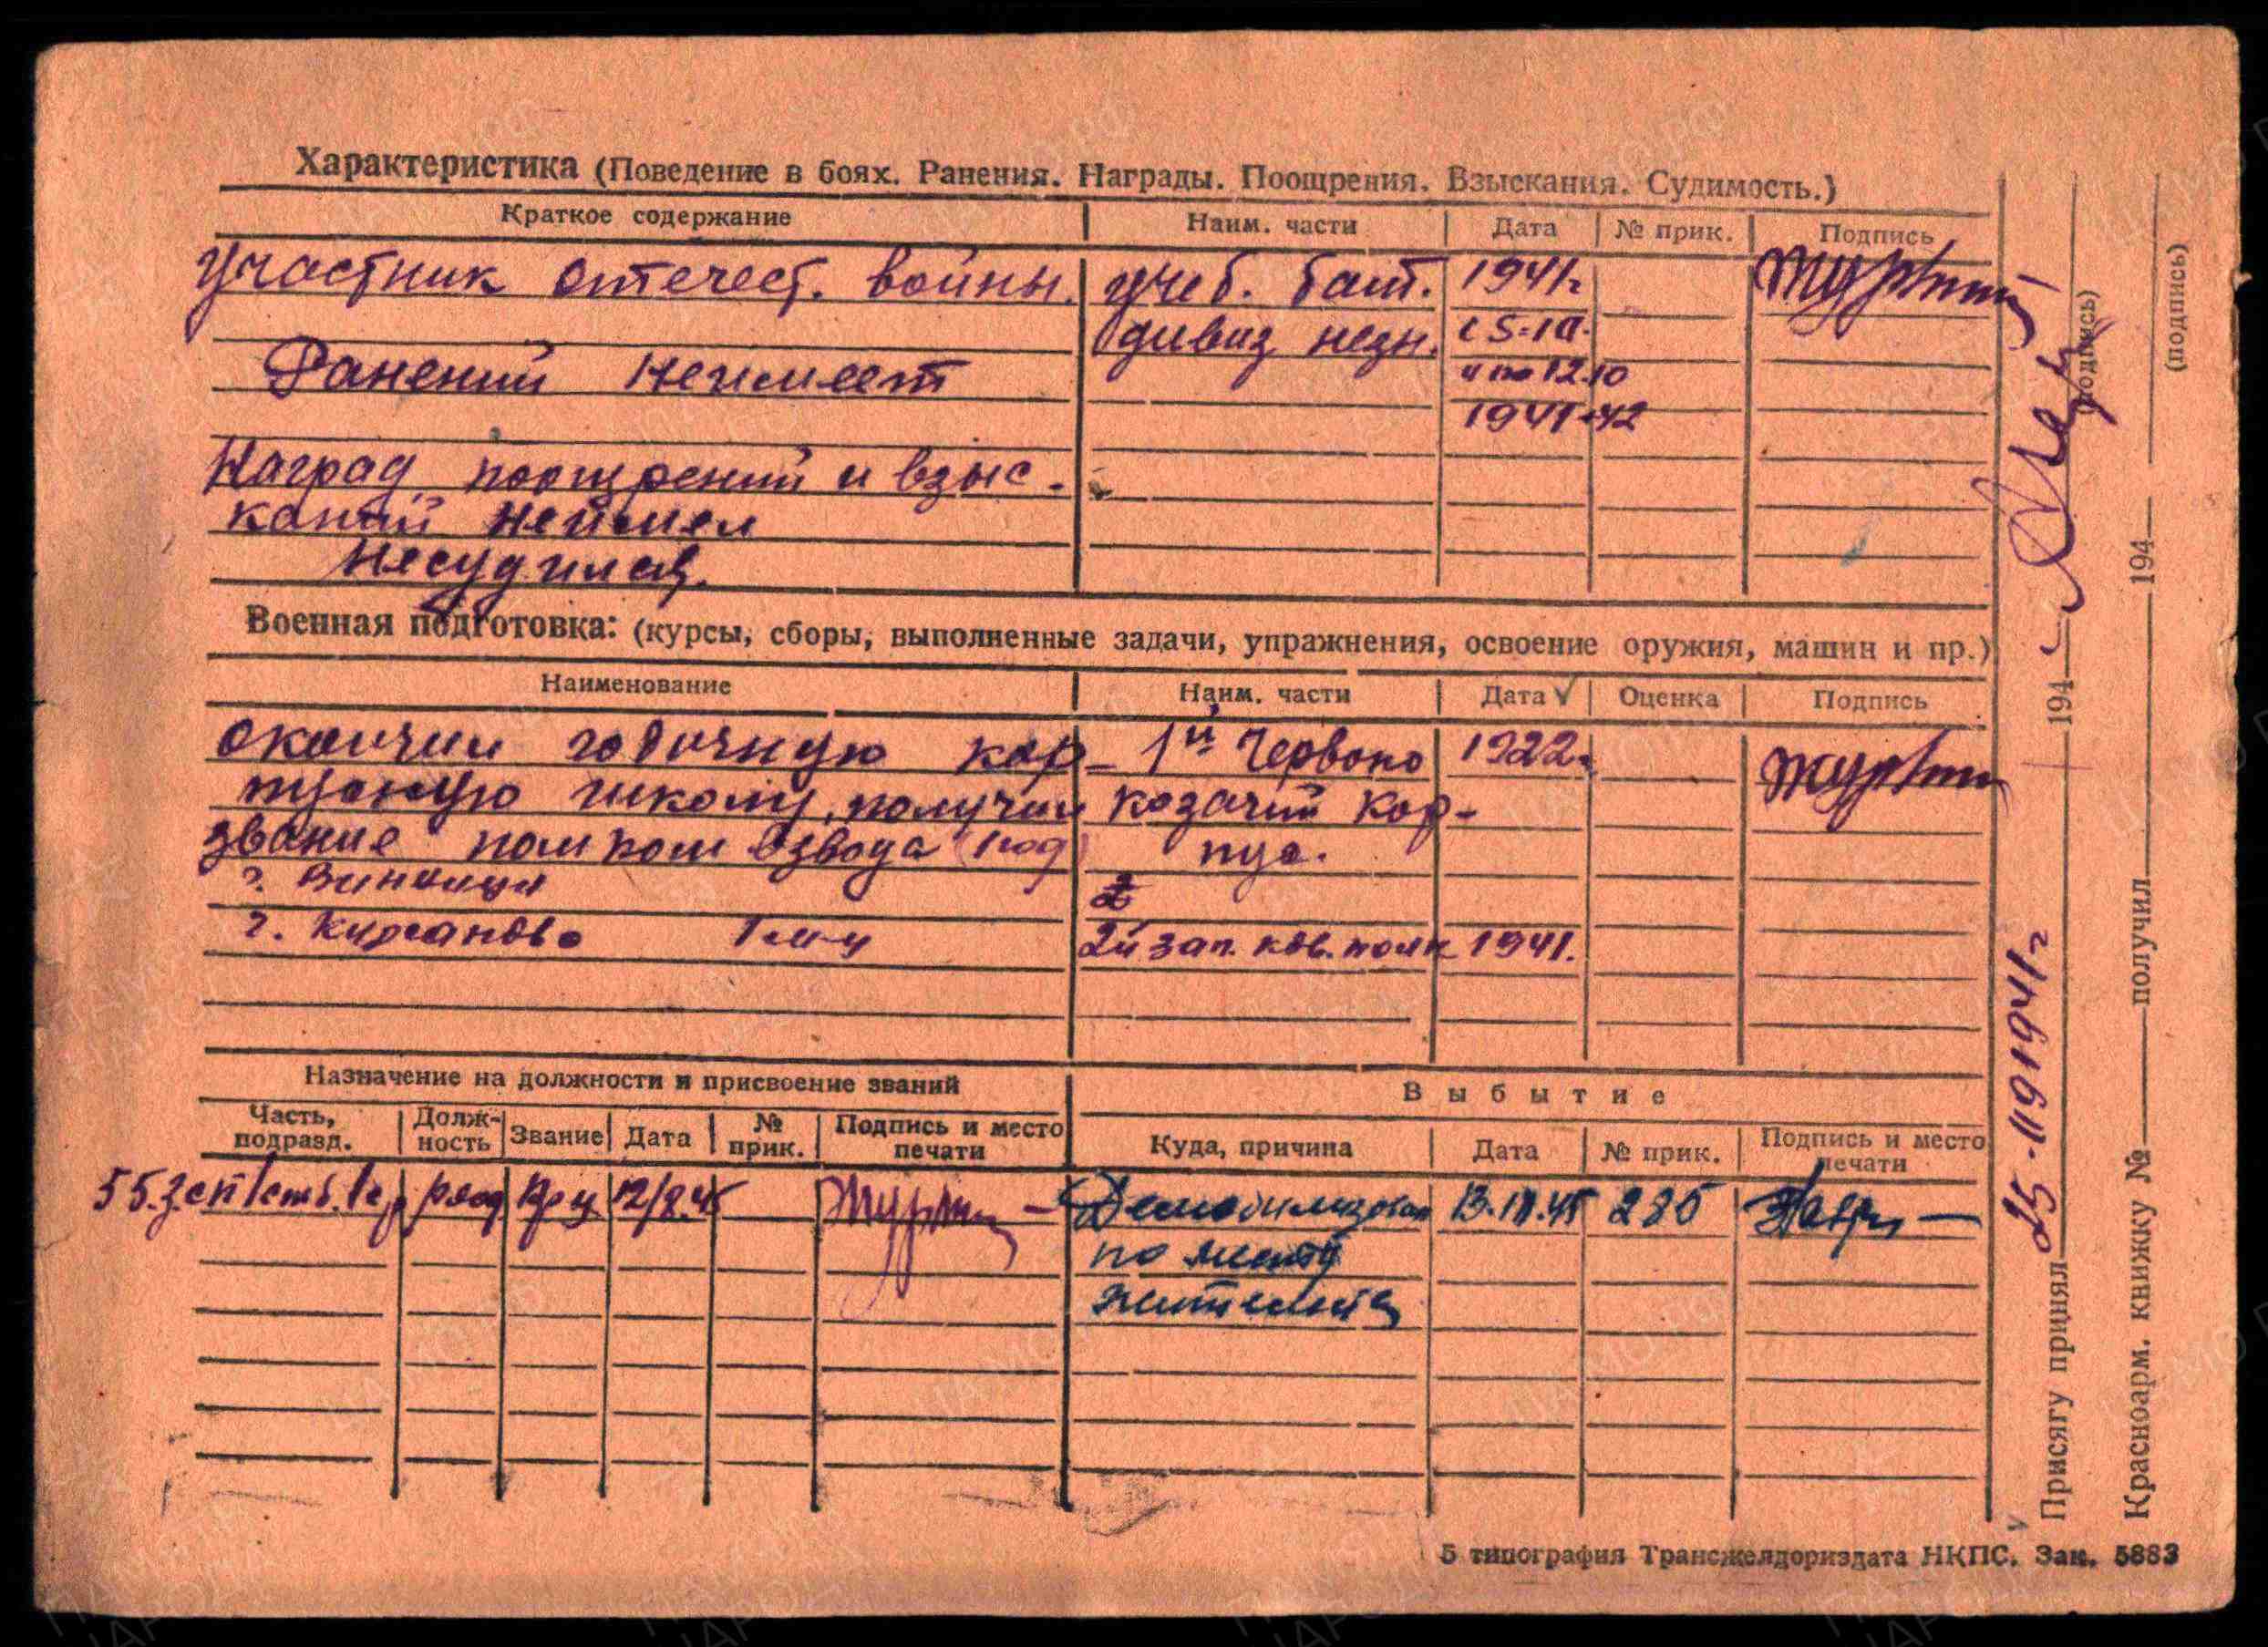 Характеристика (Поведение в боях. Ранения. Награды. Поощрения. Взыскания. Судимость.)
Краткое содержание Наим. части Дата № прик. Подпись
участник отечест. войны. учеб. бат. 1941г
дивиз незн. с 5-10.
Ранений неимеет и по 12.10
1941-42
Наград поощрений и взыс-
каний неимел
несудился.
Военная подготовка: (курсы, сборы, выполненные задачи, упражнения, освоение оружия, машин и пр.)
Наименование Наим. части Дата Оценка Подпись
окончил годичную кор- 1й Червоно 1922г
пусную школу, получил казачий кор-
звание пом ком взвода пус.
г. Винница
г. Курганово 2й зап. кав. полк 1941.
Назначение на должности и присвоение званий
Выбытие
Часть, подразд. Долж-ность Звание Дата № прик. Подпись и место печати Куда, причина Дата № прик. Подпись и место печати
55. 12/8.45 Демобилизован 285
по месту
жительства
Присягу принял 25 194 (подпись)
1941г
Красноарм. книжку № получил 194 (подпись)
5 типография Трансжелдориздата НКПС. Зак. 5883